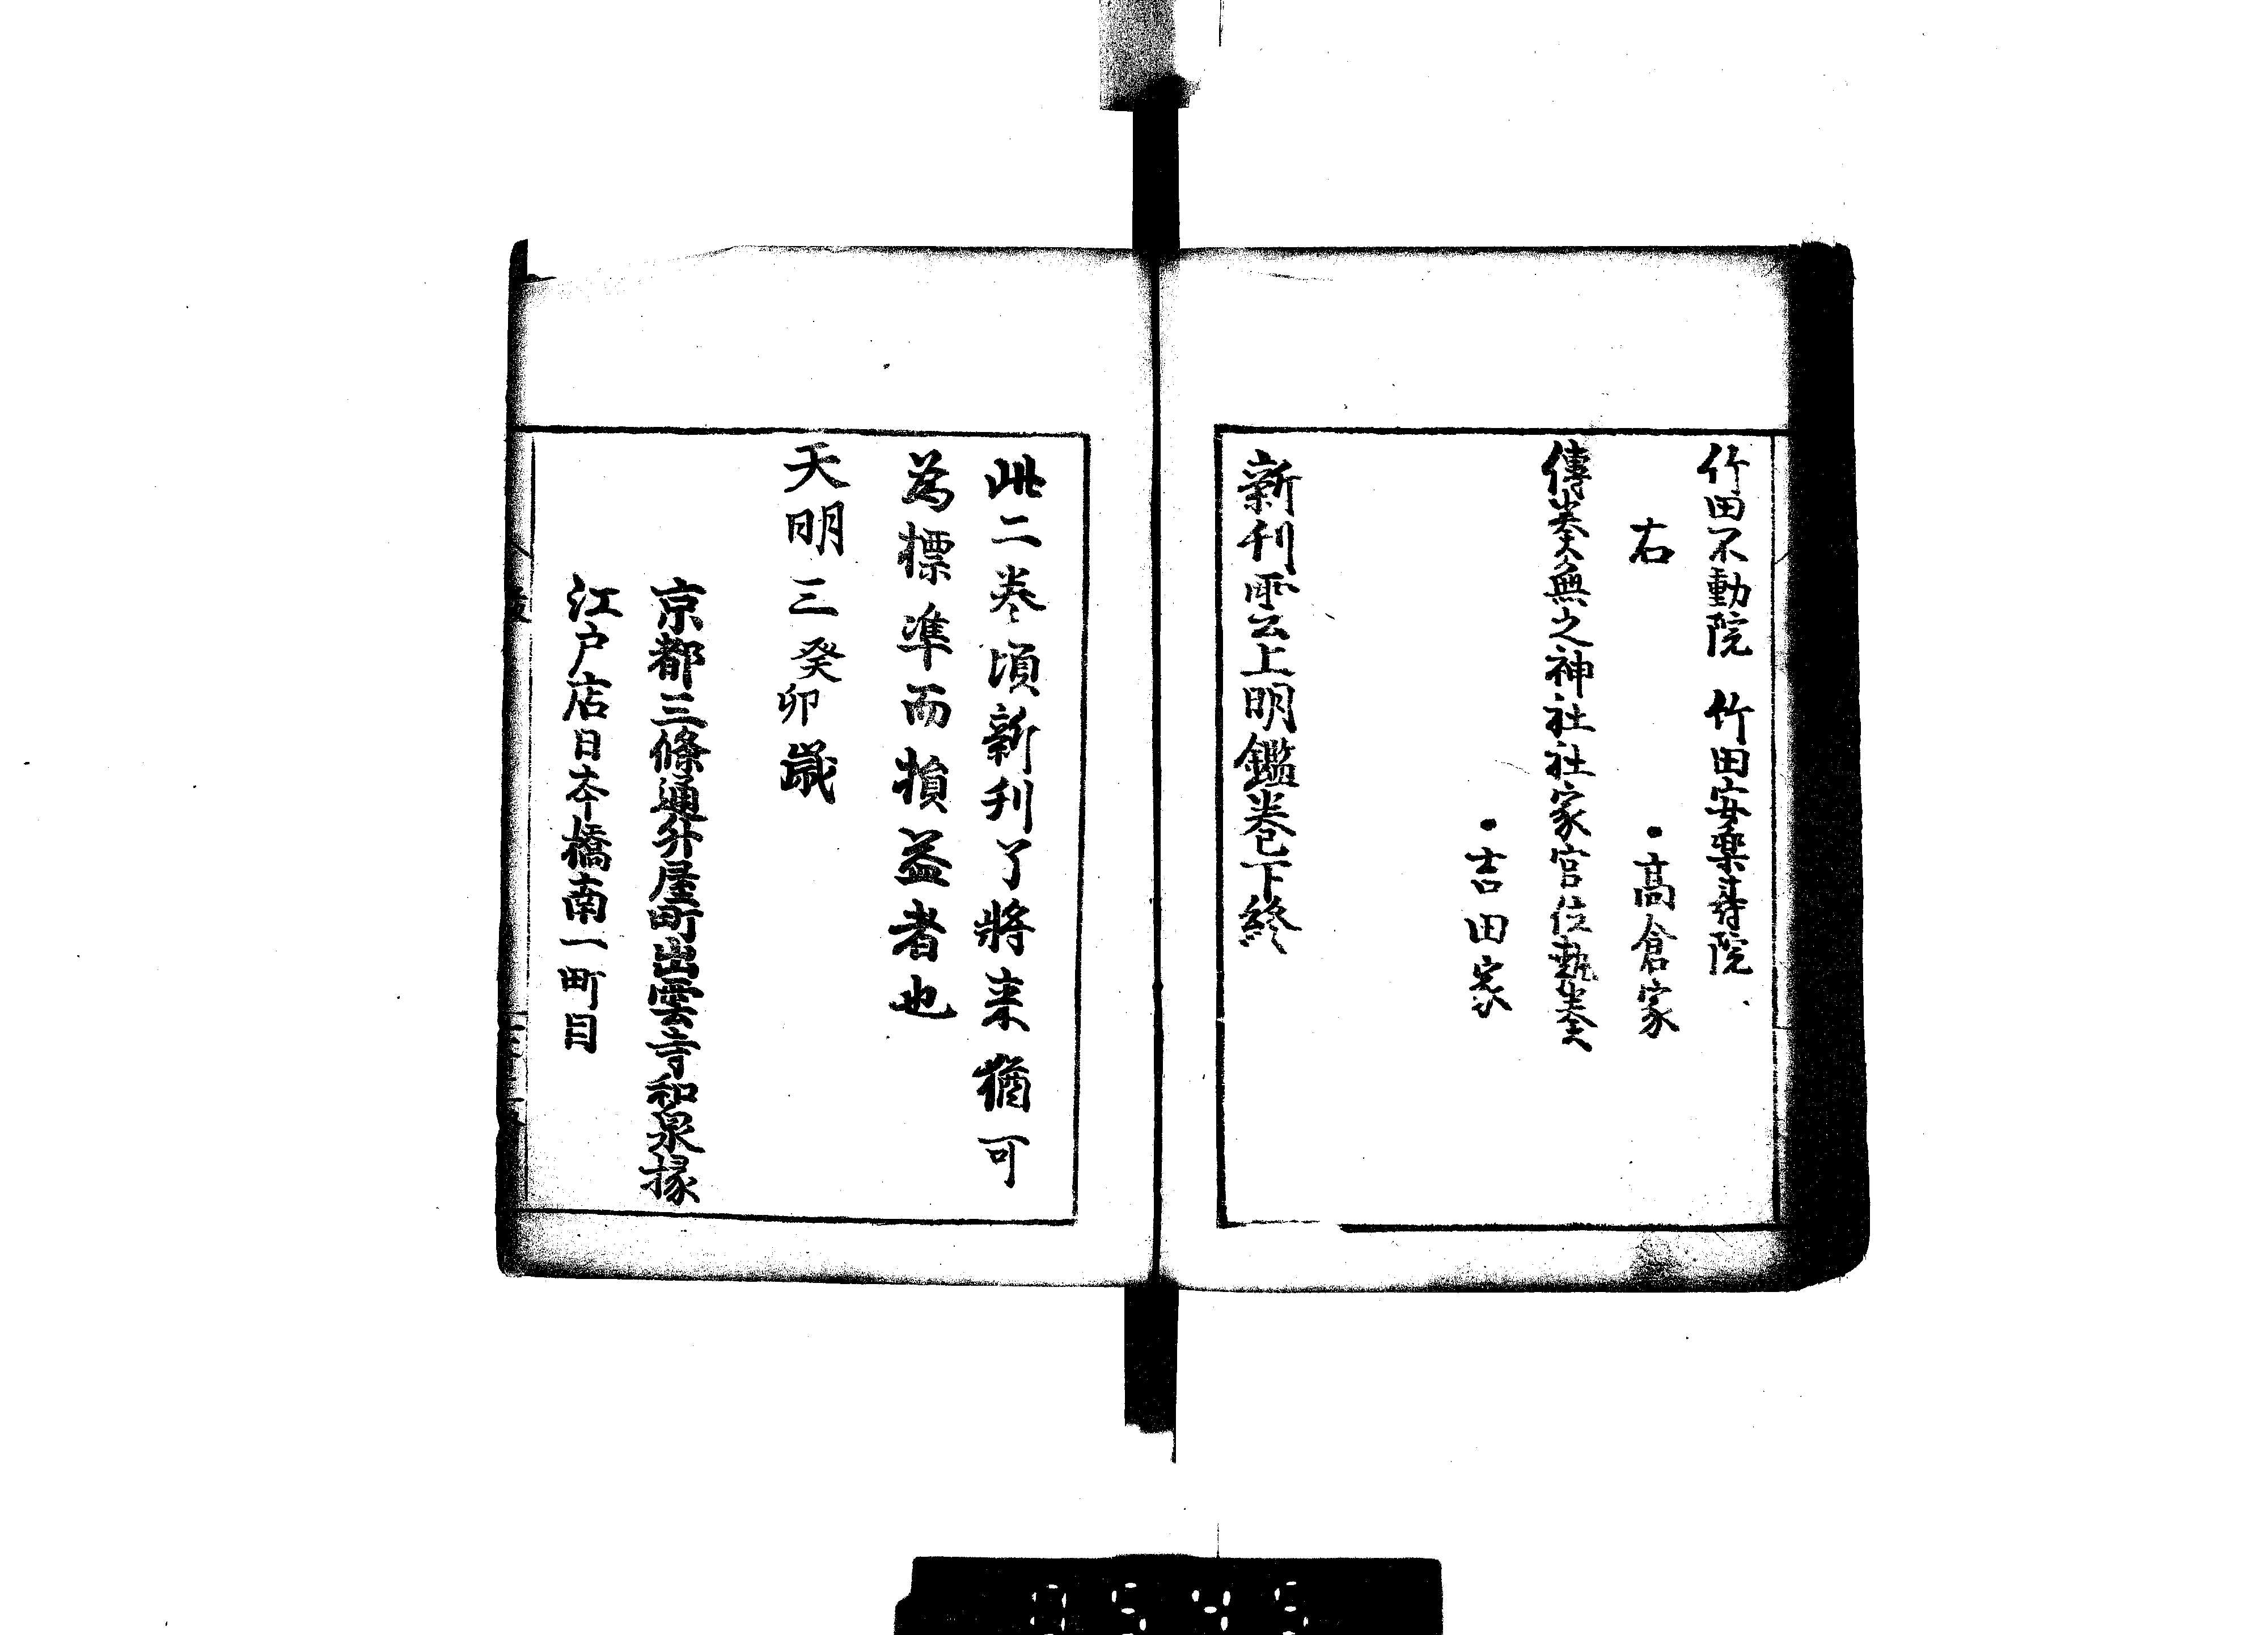 竹田不動院　竹田安樂壽院
右　・高倉家
傳奏無之神社社家官位執奏
・吉田家
新刊雲上明鑑巻下終
此二巻頃新刊了將来猶可
為標準而損益者也
天明三癸卯歳
京都三條通升屋町出雲寺和泉掾
江戸店日本橋南一町目